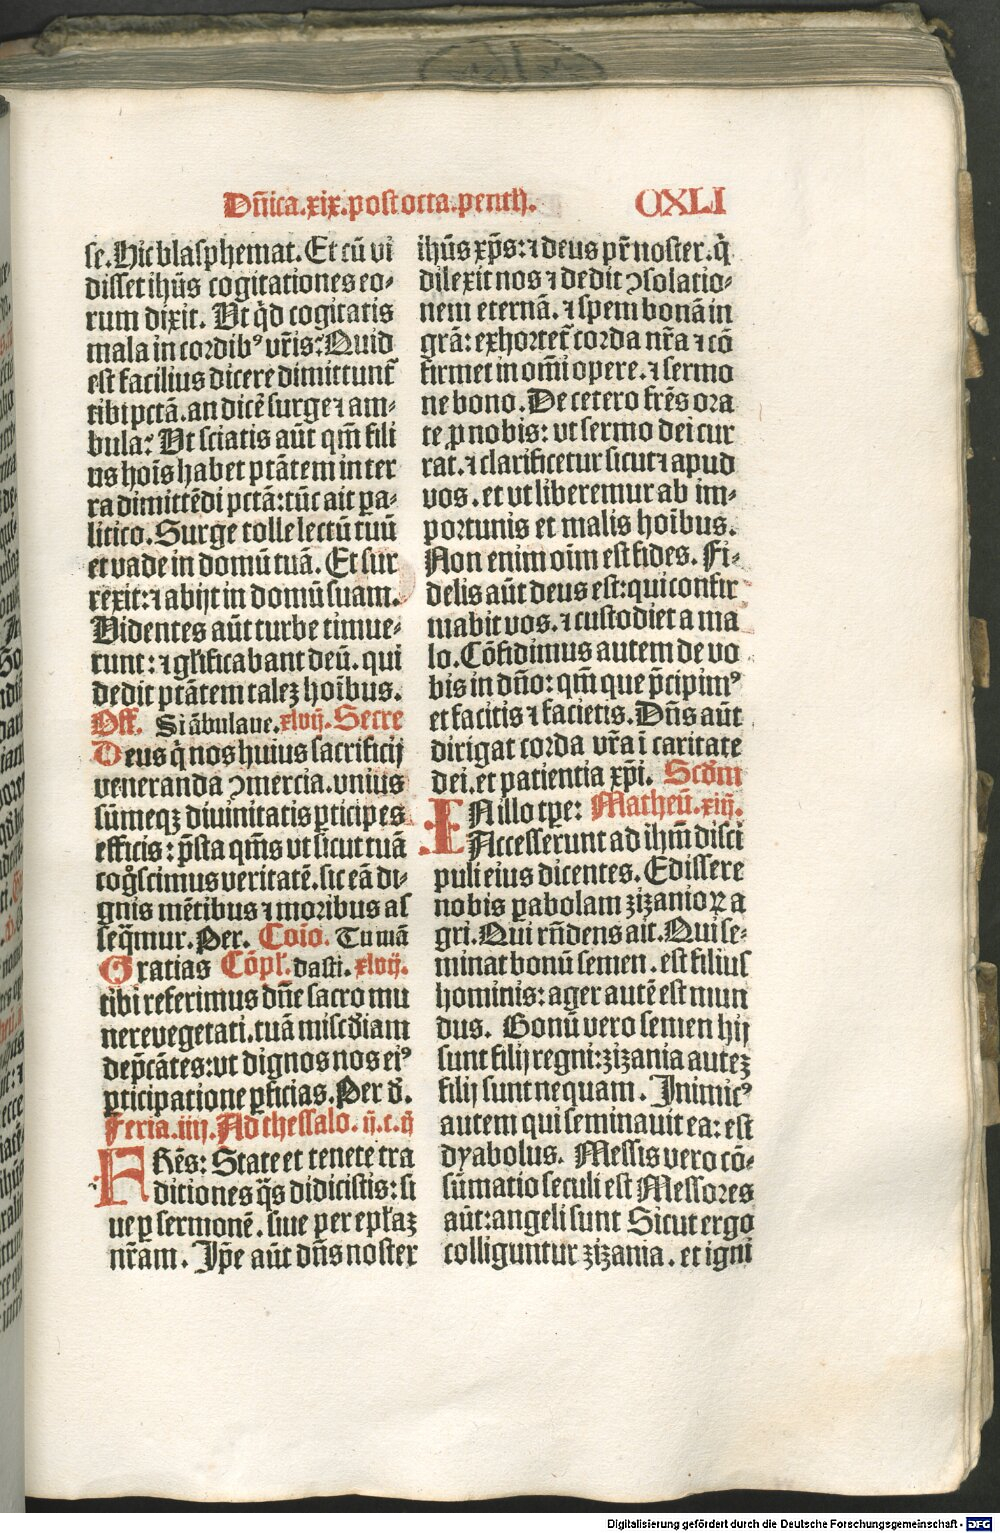 Dñica.xix.post octa.penth. CXLI
se. Hic blasphemat. Et cũ vi
disset ihũs cogitationes eo⸗
rum dixit. Ut qͥd cogitatis
mala in cordibꝰ vr̃is: Quid
est facilius dicere dimittunt᷑
tibi pctã. an dicẽ surge ⁊ am⸗
bula? Ut sciatis aũt qm̃ fili
us hoĩs habet ptãtem in ter
ra dimittẽdi pctã: tũc ait pa⸗
litico. Surge tolle lectũ tuũ
et vade in domũ tuã. Et sur
rexit: ⁊ abijt in domũ suam.
Videntes aũt turbe timue⸗
runt: ⁊ gl̃ificabant deũ. qui
dedit ptãtem talez hoĩbus.
Off. Si ãbulaue. xlvij. Secre
Deus qͥ nos huius sacrificij
veneranda ꝯmercia. vnius
sũmeqꝫ diuinitatis ꝑticipes
efficis: p̃sta qm̃s vt sicut tuã
cog̊scimus veritatẽ. sic eã di⸗
gnis mẽtibus ⁊ moribus as
seq̃mur. Per. Coĩo. Tu mã
Gratias Cõpl̃. dasti. xlvij.
tibi referimus dñe sacro mu
nere vegetati. tuã misc̃diam
dep̃cãtes: vt dignos nos eiꝰ
ꝑticipatione ꝑficias. Per d̃.
Feria.iiij. Ad thessalo. ij. c. ij
FRẽs: State et tenete tra
ditiones q̃s didicistis: si
ue ꝑ sermonẽ. siue per epl̃az
nr̃am. Ip̃e aũt dñs noster
ihũs xp̃s: ⁊ deus pr̃ noster. qͥ
dilexit nos ⁊ dedit ꝯsolatio⸗
nem eternã. ⁊ spem bonã in
grã: exhortet᷑ corda nr̃a ⁊ cõ
firmet in om̃i opere. ⁊ sermo
ne bono. De cetero fr̃es ora
te ꝓ nobis: vt sermo dei cur
rat. ⁊ clarificetur sicut ⁊ apud
vos. et vt liberemur ab im⸗
portunis et malis hoĩbus.
Non enim oĩm est fides. Fi⸗
delis aũt deus est: qui confir
mabit vos. ⁊ custodiet a ma
lo. Cõfidimus autem de vo
bis in dño: qm̃ que p̃cipimꝰ
et facitis ⁊ facietis. Dñs aũt
dirigat corda vr̃a ĩ caritate
dei. et patientia xp̃i. Scd̃m
IN illo tꝑe: Matheũ. xiij.
Accesserunt ad ihm̃ disci
puli eius dicentes. Edissere
nobis ꝑabolam zizanioꝝ a
gri. Qui rñdens ait. Qui se⸗
minat bonũ semen. est filius
hominis: ager autẽ est mun
dus. Bonũ vero semen hij
sunt filij regni: zizania autez
filij sunt nequam. Inimicꝰ
autem qui seminauit ea: est
dyabolus. Messis vero cõ⸗
sũmatio seculi est Messores
aũt: angeli sunt Sicut ergo
colliguntur zizania. et igni
Digitalisierung gefördert durch die Deutsche Forschungsgemeinschaft - DFG